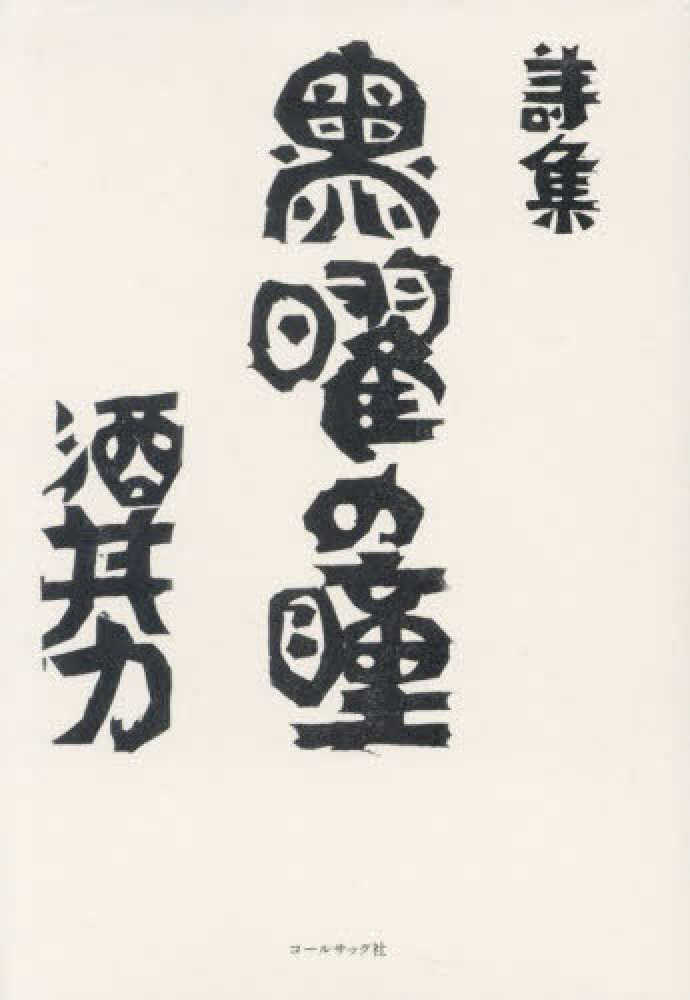 詩集
黒曜の瞳
酒井力
コールサック社